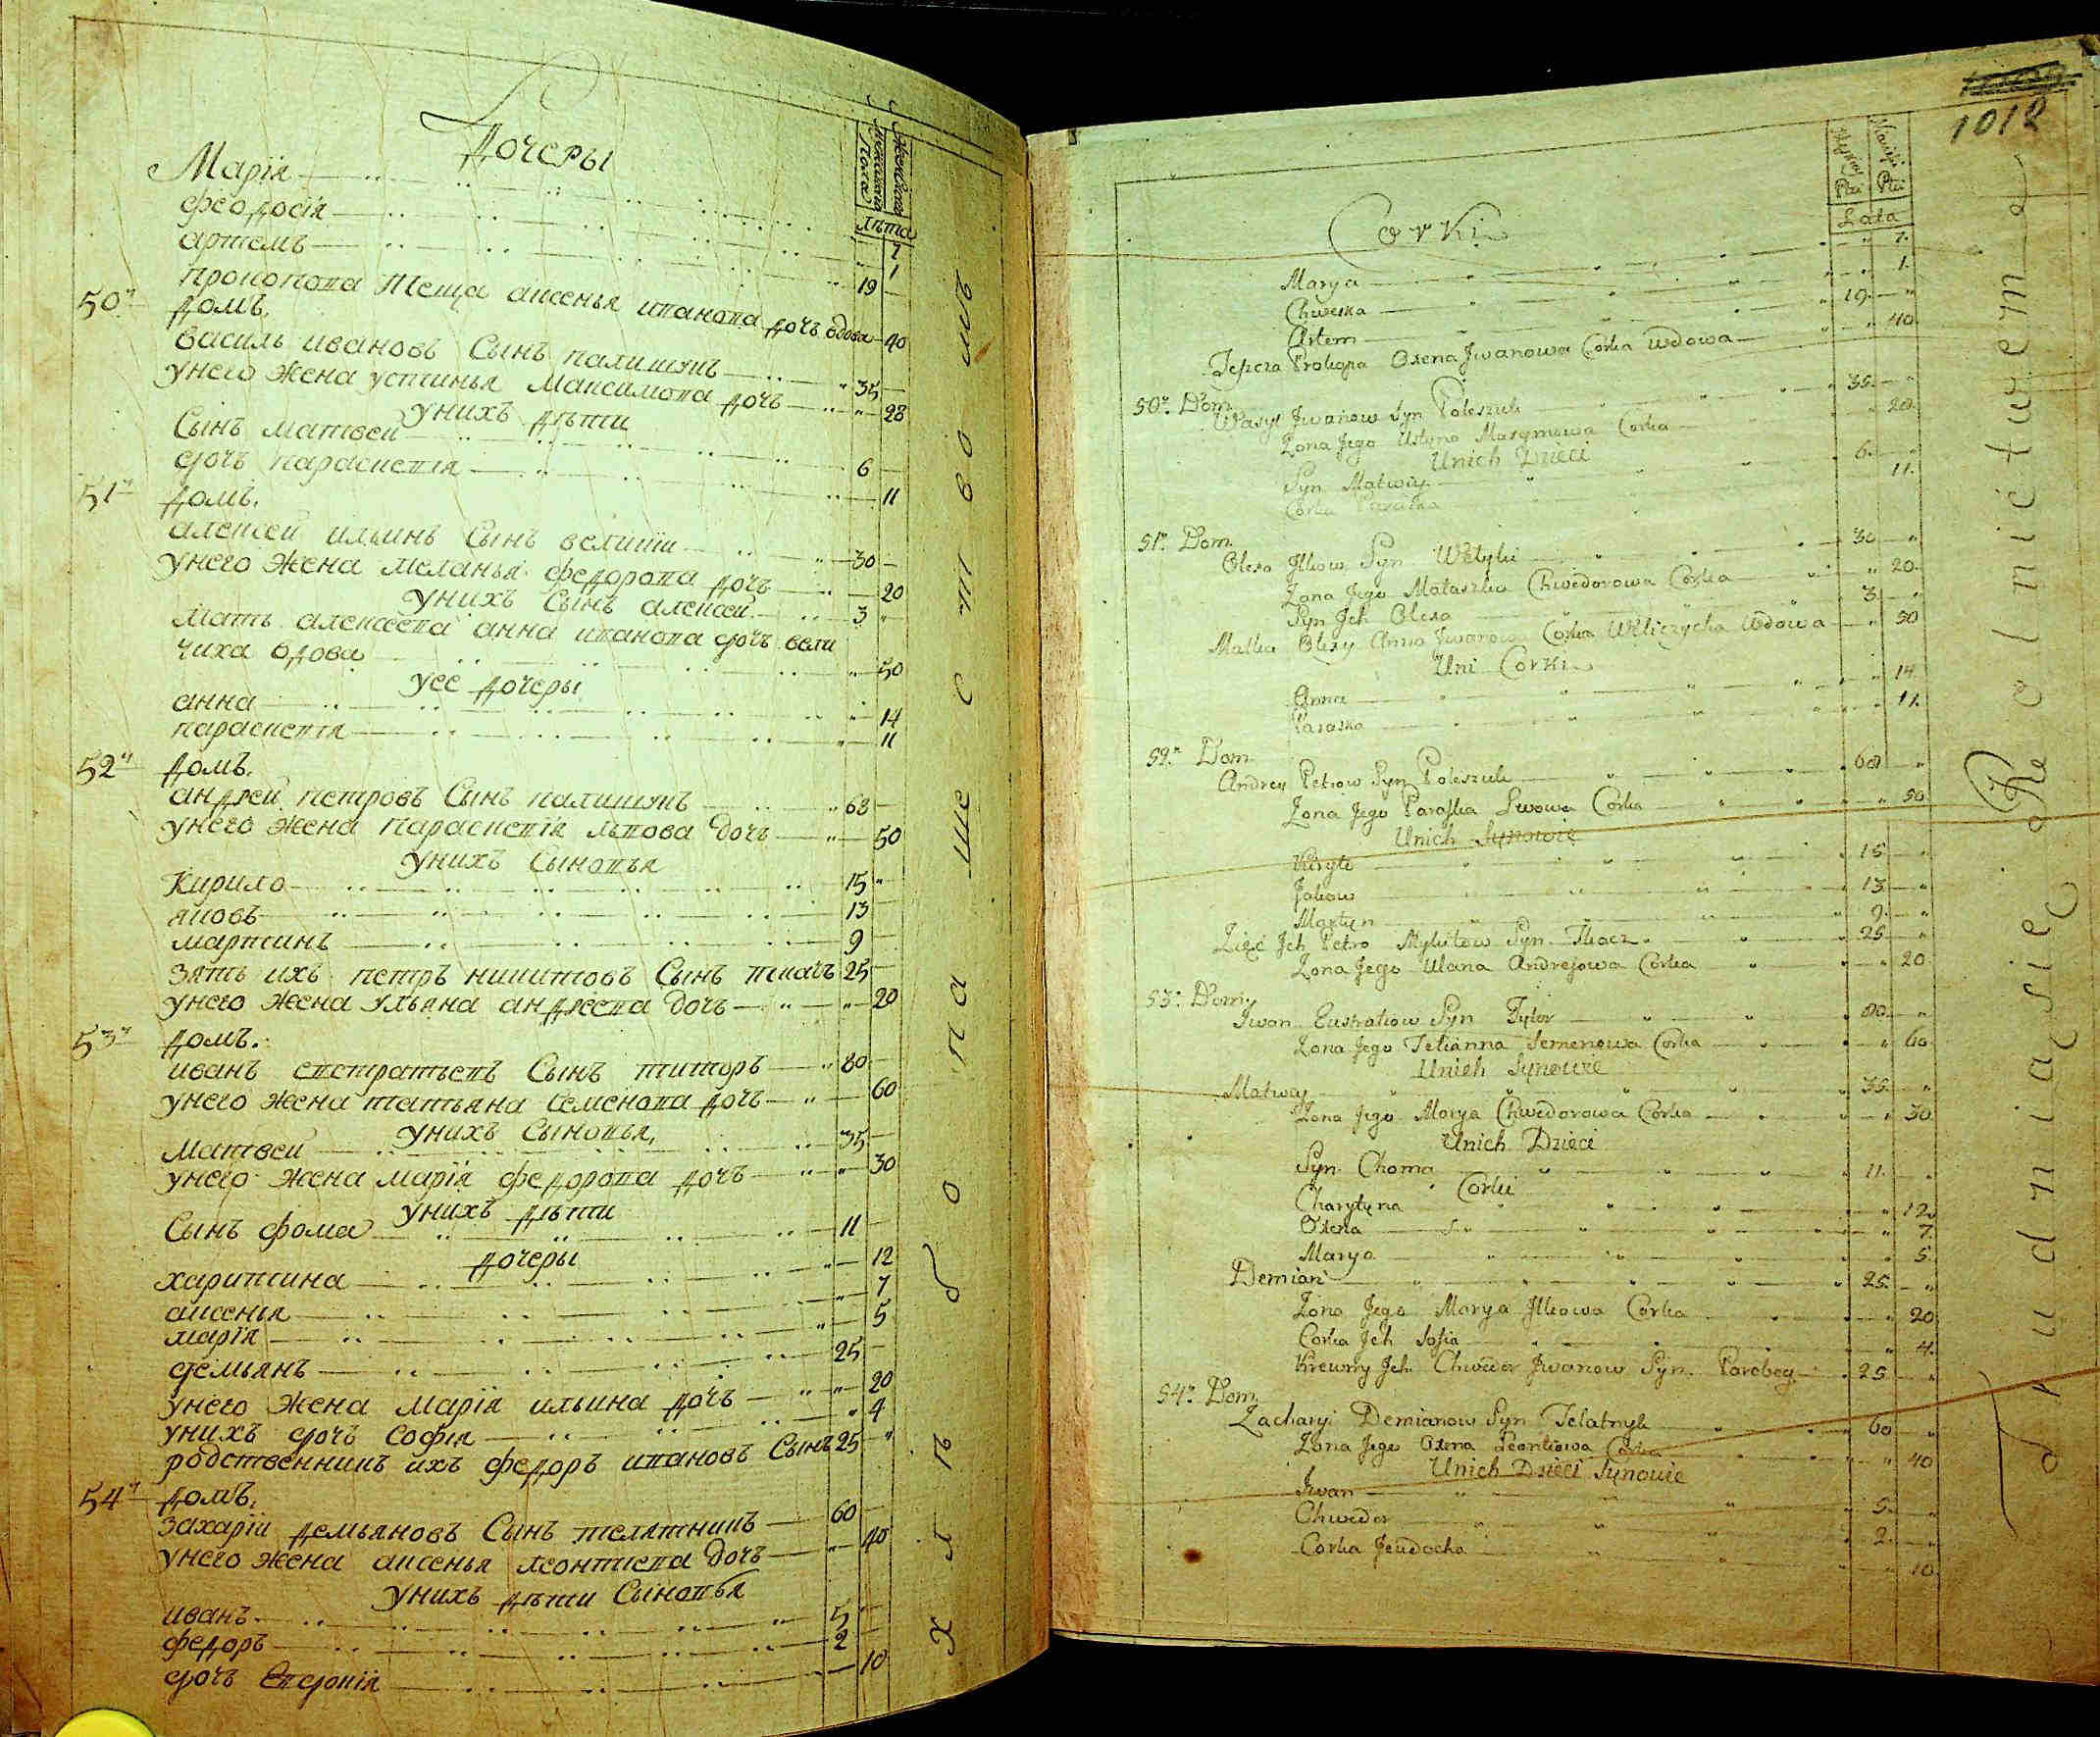 Дочеры
Женского
Мужеского
Пола
Лѣта
Марія 7
феодосія 1
артемъ 19
прокопова теща аксенья иванова дочъ вдова 40
50й домъ.
василь ивановъ Сынъ палишукъ 35
унего жена устинья максимова дочъ 28
унихъ дѣти
Сынъ матвеи 6
дочъ параскевія 11
51й домъ.
алексеи ильинъ Сынъ великіи 30
унего жена меланья федорова дочъ 20
унихъ Сынъ алексеи 3
мать алексеева анна иванова дочъ вели
чиха вдова 50
уее дочеры
анна 14
параскевія 11
52й домъ.
андреи петровъ Сынъ палишукъ 68
унего жена параскевія львова дочъ 50
унихъ Сыновья
Кирило 15
яковъ 13
мартинъ 9
зять ихъ петръ никитовъ Сынъ ткачъ 25
унего жена ульяна андреева дочъ 20
53й домъ.
иванъ евстратьевъ Сынъ титоръ 80
унего жена татьяна семенова дочъ 60
унихъ Сыновья,
матвеи 35
унего жена марія федорова дочъ 30
унихъ дѣти
Сынъ фома 11
дочеры
харитина 12
аксенья 7
марія 5
демьянъ 25
унего жена марія ильина дочъ 20
унихъ дочъ софія 4
родственникъ ихъ федоръ ивановъ Сынъ 25
54й домъ.
захаріи демьяновъ Сынъ телятникъ 60
унего жена аксенья леонтиева дочъ 40
унихъ дѣти Сыновья
иванъ 5
федоръ 2
дочъ Евдокія 10
хлѣбопашеством
1012
Męzka Płci
Płci
Lata
Corki
Marya 7.
Chweska 1.
Artem 19.
Teszcza Prokopa Oxena Jwanowa Corka wdowa 40.
50ty Dom
Wasyl Jwanow Syn Poleszuk 35.
Zona Jego Ustyna Maxymowa Corka 28.
Unich Dzieci
Syn Matwiy 6.
Corka Paraska 11.
51y Dom
Olexa Jlkow Syn Welyki 30
Zona Jego Mataszka Chwedorowa Corka 20.
Syn Jch Olexa 3.
Matka Olexy Anna Jwanow Corka Weliczycha Wdowa 50
Uni Corki
Anna 14.
Paraska 11.
52y Dom
Andrey Petrow Syn Poleszuk 68
Zona Jego Paraska Lwowa Corka 50
Unich Synowie
Kiryło 15
Jakow 13
Martyn 9.
Zięć Jch Petro Mykitow Syn Tkacz 25
Zona Jego Ulana Andrejowa Corka 20
53y Dom
Jwan Eustratiow Syn Tytor 80.
Zona Jego Tetianna Semenowa Corka 60
Unich Synowie
Matwey 35.
Zona Jego Marya Chwedorowa Corka 30
Unich Dzieci
Syn Choma 11.
Corki
Charytyna 12.
Oxena 7.
Marya 5.
Demian 25.
Zona Jego Marya Jlkowa Corka 20
Corka Jch Sofia 4.
Krewny Jch Chwedor Jwanow Syn Parobog 25
54y Dom
Zacharyi Demianow Syn Telatnyk 60
Zona Jego Oxena Leontiowa Corka 40
Unich Dzieci Synowie
Jwan 5.
Chwedor 2.
Corka Jeudocha 10.
Trudniąsię Rolnictwem